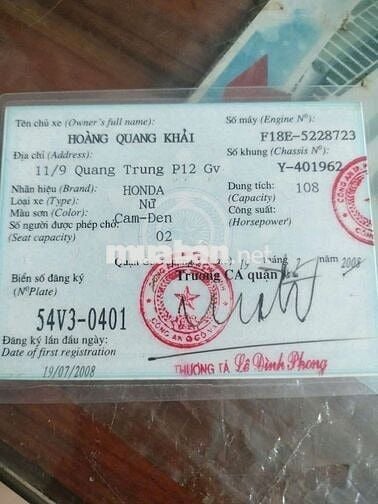 Tên chủ xe (Owner's full name):
HOÀNG QUANG KHẢI
Số máy (Engine Nº):
F18E-5228723
Địa chỉ (Address):
11/9 Quang Trung P12 Gv
Số khung (Chassis Nº):
Y-401962
Nhãn hiệu (Brand): HONDA
Dung tích: 108
(Capacity)
Loại xe (Type): Nữ
Màu sơn (Color): Cam-Đen
Công suất:
(Horsepower)
Số người được phép chở: 02
(Seat capacity)
muaban.net
năm 2008
Biển số đăng ký
(Nº Plate)
Trưởng CA quận
54V3-0401
Đăng ký lần đầu ngày:
Date of first registration
19/07/2008
THƯỢNG TÁ Lê Đình Phong